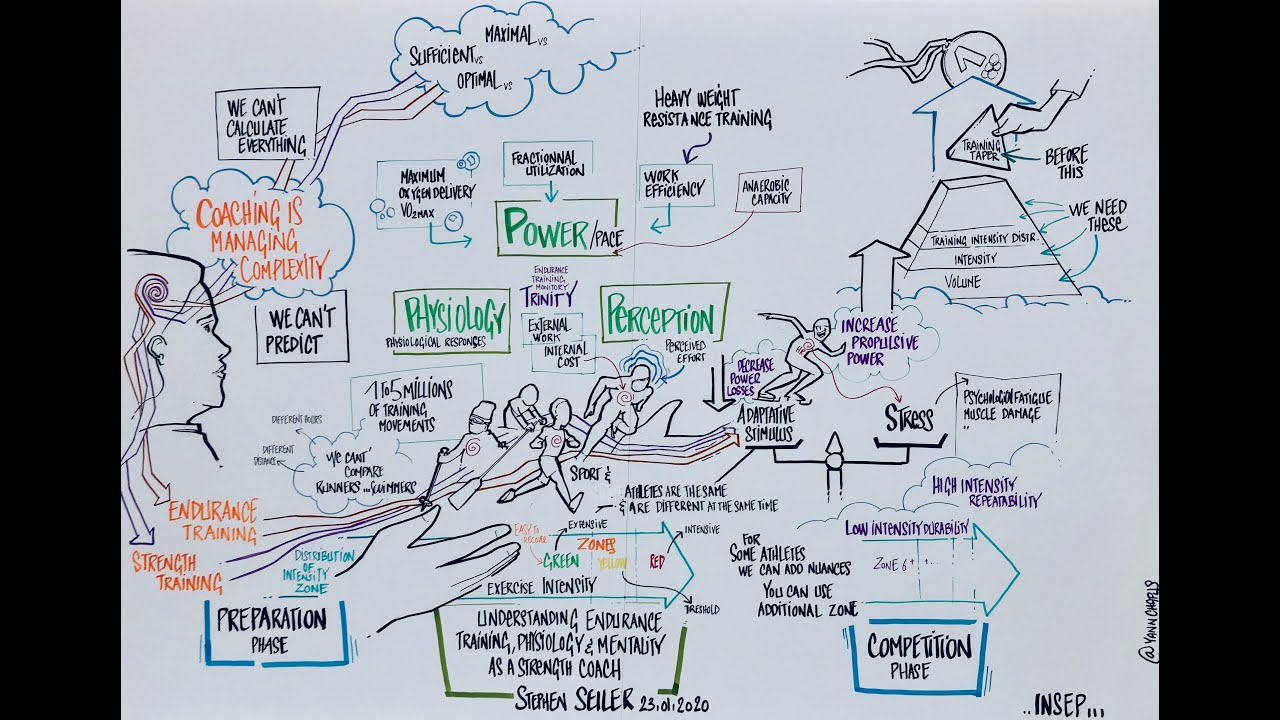 MAXIMAL VS
SUFFICIENT VS
OPTIMAL VS
WE CAN'T
CALCULATE
EVERYTHING
COACHING IS
MANAGING
COMPLEXITY
WE CAN'T
PREDICT
MAXIMUM
OXYGEN DELIVERY
VO2MAX
FRACTIONNAL
UTILIZATION
HEAVY WEIGHT
RESISTANCE TRAINING
WORK
EFFICIENCY
ANAEROBIC
CAPACITY
POWER/PACE
ENDURANCE
TRAINING
MONITORY
TRINITY
PHYSIOLOGY
PHYSIOLOGICAL RESPONSES
EXTERNAL
WORK
INTERNAL
COST
PERCEPTION
PERCEIVED
EFFORT
TRAINING
TAPER
BEFORE
THIS
WE NEED
THESE
TRAINING INTENSITY DISTR.
INTENSITY
VOLUME
INCREASE
PROPULSIVE
POWER
DECREASE
POWER
LOSSES
ADAPTATIVE
STIMULUS
STRESS
PSYCHOLOGICAL FATIGUE
MUSCLE DAMAGE
''
1 TO 5 MILLIONS
OF TRAINING
MOVEMENTS
DIFFERENT HOURS
DIFFERENT
DISTANCE
WE CANT'
COMPARE
RUNNERS ... SWIMMERS
SPORT &
ATHLETES ARE THE SAME
& ARE DIFFERENT AT THE SAME TIME
ENDURANCE
TRAINING
STRENGTH
TRAINING
DISTRIBUTION
OF
INTENSITY
ZONE
EASY TO
RECOVER
EXTENSIVE
ZONES
INTENSIVE
GREEN
YELLOW
RED
EXERCISE INTENSITY
TRESHOLD
HIGH INTENSITY
REPEATABILITY
LOW INTENSITY DURABILITY
ZONE 6+ +...
FOR
SOME ATHLETES
WE CAN ADD NUANCES
YOU CAN USE
ADDITIONAL ZONE
PREPARATION
PHASE
UNDERSTANDING ENDURANCE
TRAINING, PHYSIOLOGY & MENTALITY
AS A STRENGTH COACH
STEPHEN SEILER 23.01.2020
COMPETITION
PHASE
@YANNCHAPIS
..INSEP...